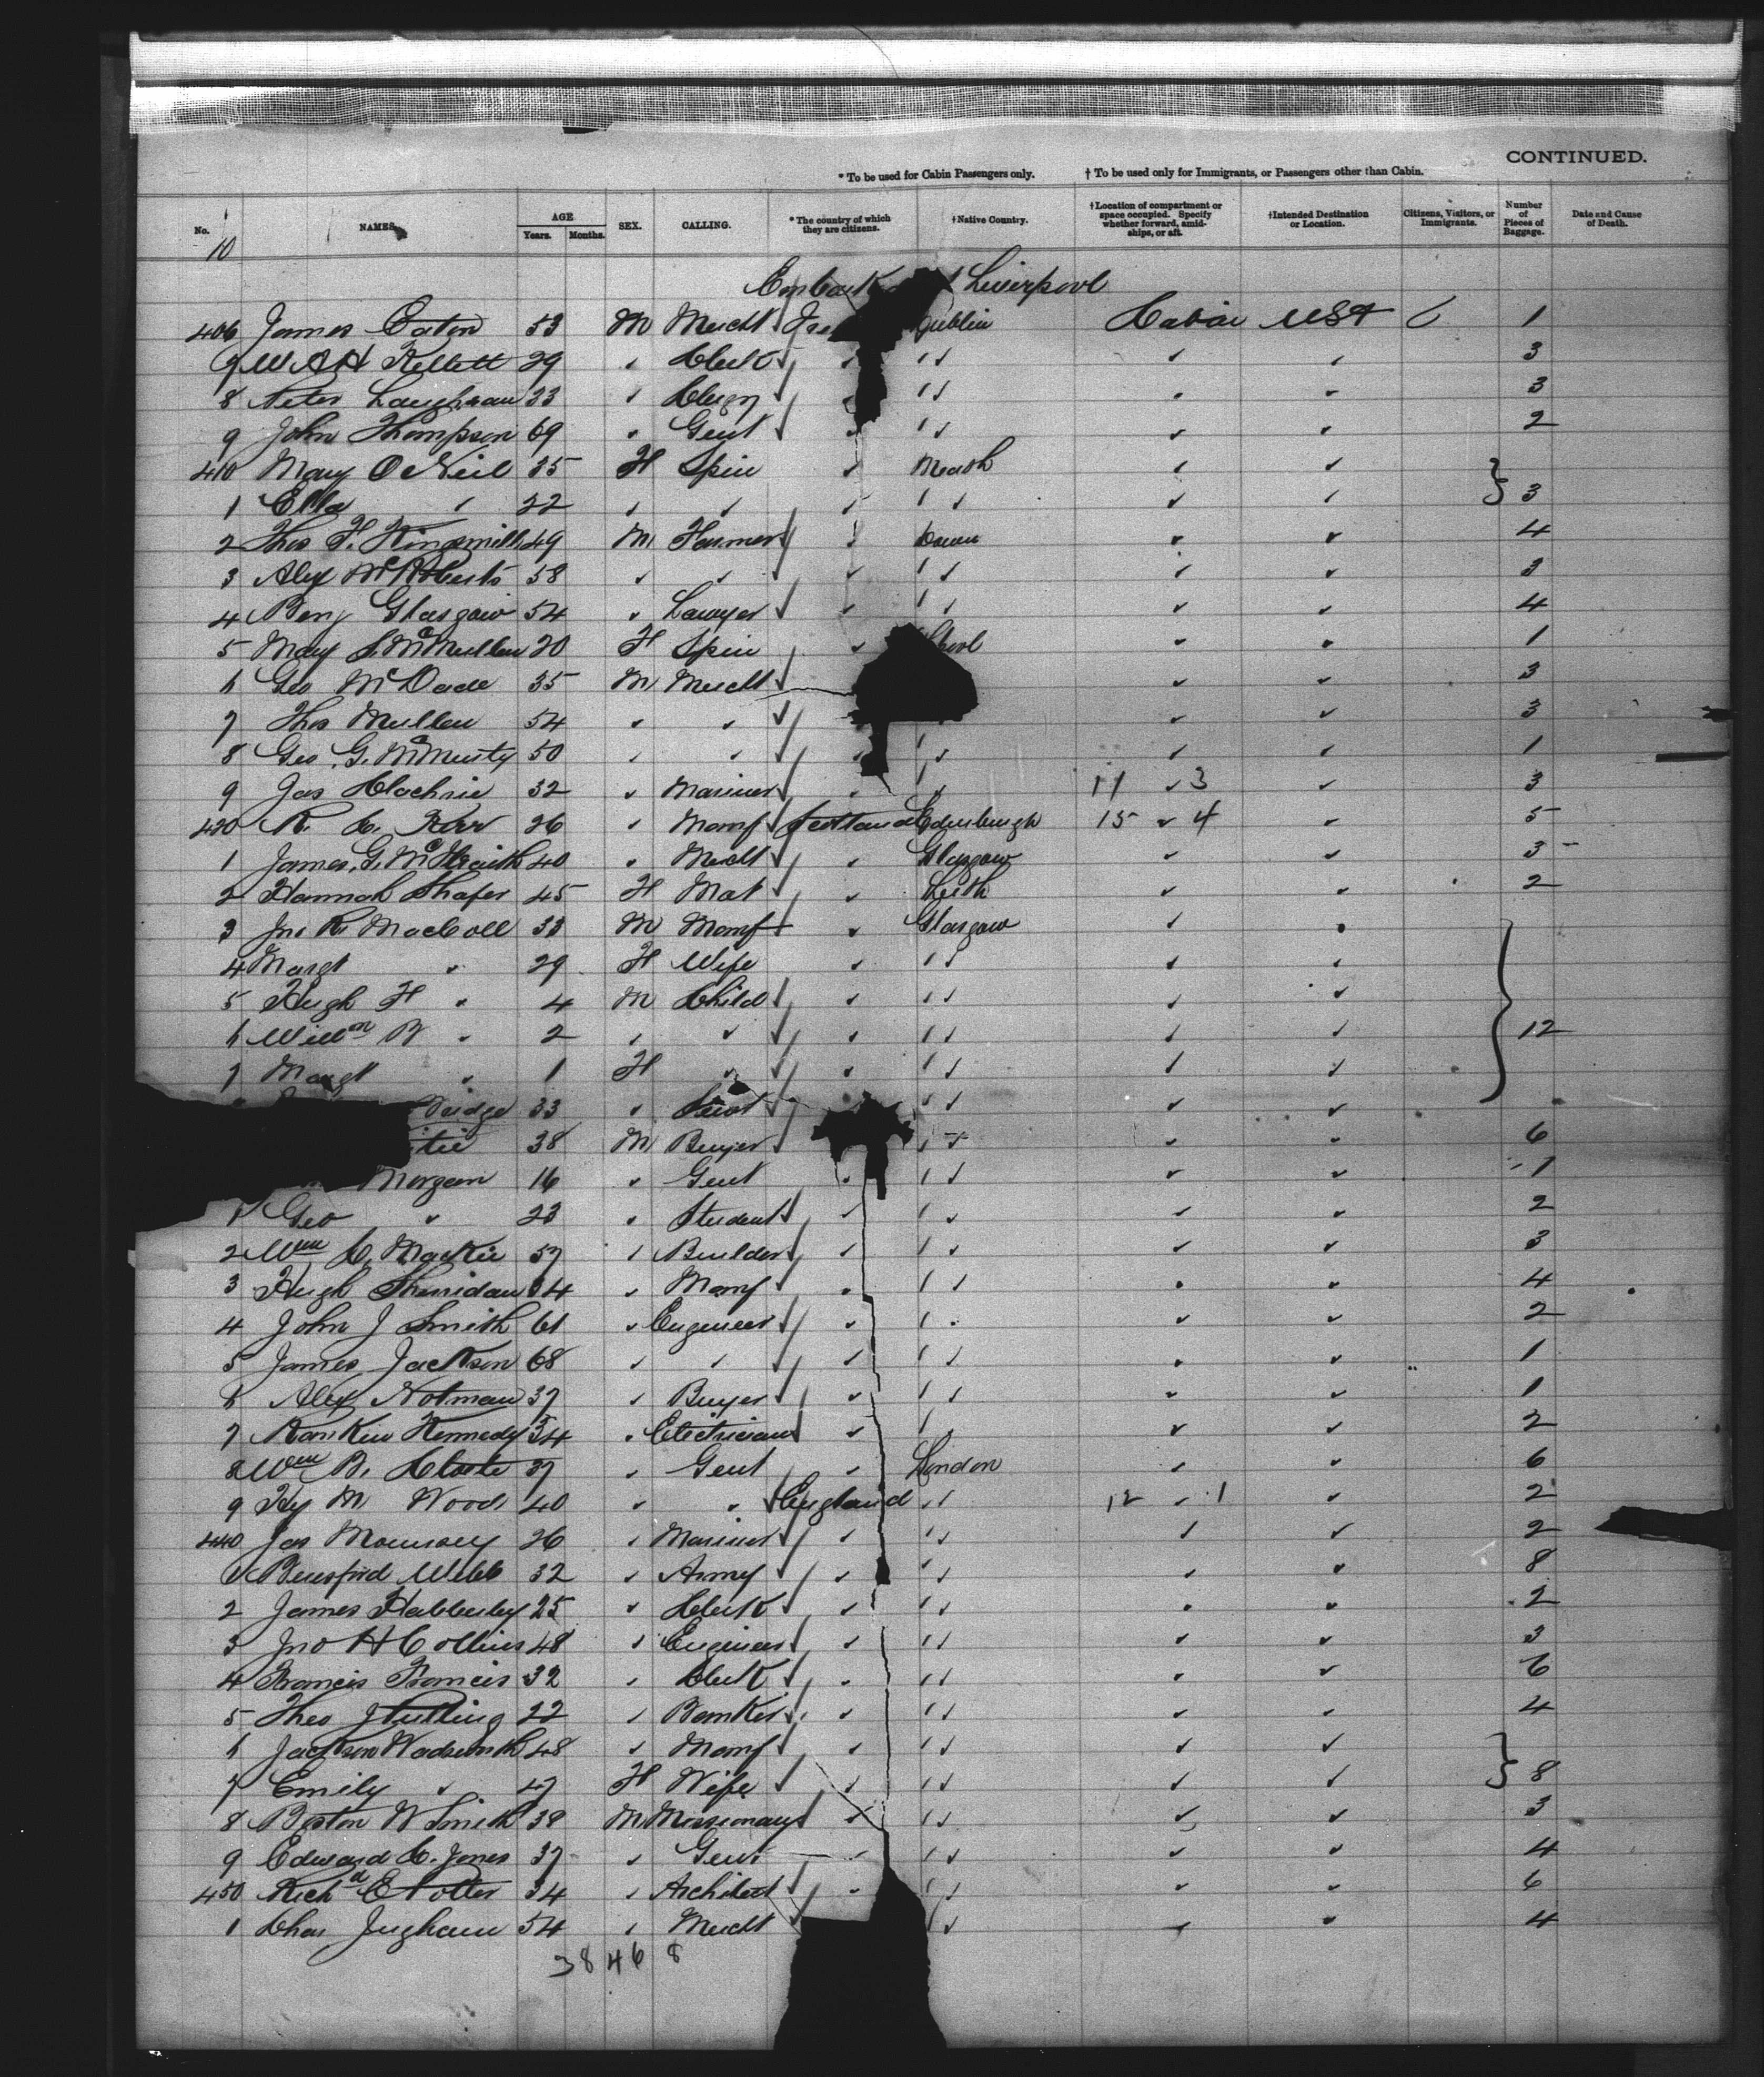 CONTINUED.
* To be used for Cabin Passengers only. † To be used only for Immigrants, or Passengers other than Cabin.
No. NAMES. AGE Years. Months. SEX. CALLING. * The country of which they are citizens. † Native Country. † Location of compartment or space occupied. Specify whether forward, amidships, or aft. † Intended Destination or Location. Citizens, Visitors, or Immigrants. Number of Pieces of Baggage. Date and Cause of Death.
10
Liverpool
406 James Eaton 53 M Mercht Dublin Cabin USA 1
7 W A H Kellett 29 " Clerk " " " " 3
8 Peter Laughran 33 " Clergy " " " 3
9 John Thompson 69 " Gent " " " " 2
410 Mary O Neil 35 F Spin " Meath " "
1 Ella " 22 " " " " " " } 3
2 Thos F. Kingsmill 49 M Farmer " Down " " 4
3 Alex McRoberts 58 " " " " " " 3
4 Benj Glasgow 54 " Lawyer " " " " 4
5 Mary S. McMullen 20 F Spin " " " 1
6 Geo McDade 35 M Mercht " " 3
7 Thos Mullen 54 " " " " 3
8 Geo. G. McMurty 50 " " " " " 1
9 Jas Clachrie 32 " Mariner " " 11 " 3 " 3
420 R. C. Kerr 26 " Manf Scotland Edinburgh 15 " 4 " 5
1 James. G. McIlraith 40 " Mercht " Glasgow " " 3
2 Hannah Shafer 45 F Mat " Leith " " 2
3 Jno R. MacColl 33 M Manf " Glasgow " "
4 Margt " 29 F Wife " " " "
5 Hugh F " 4 M Child " " " "
6 Willm B " 2 " " " " " " } 12
7 Margt " 1 F " " " " "
33 " Servt " " "
38 M Buyer " " " 6
Morgan 16 " Gent " " " " 1
1 Geo " 23 " Student " " " " 2
2 Wm C. Mackie 57 " Builder " " " " 3
3 Hugh Sheridan 34 " Manf " " " " 4
4 John J Smith 61 " Engineer " " " " 2
5 James Jackson 68 " " " " " " 1
6 Alex Notman 37 " Buyer " " " " 1
7 Rankin Kennedy 34 " Electrician " " " " 2
8 Wm B. Cloete 37 " Gent " London " " 6
9 Hy M Wood 40 " " England " 12 " 1 " 2
440 Jas Mounsey 26 " Mariner " " " " 2
1 Beresford Webb 32 " Army " " " " 8
2 James Habberley 25 " Clerk " " " " 2
3 Jno H Collins 48 " Engineer " " " " 3
4 Francis Francis 32 " Clerk " " " " 6
5 Theo 22 " Banker " " " " 4
6 Jackson Wadsworth 48 " Manf " " " "
7 Emily " 47 F Wife " " " " } 8
8 Boston W Smith 38 M Missionary " " " " 3
9 Edward C. Jones 37 " Gent " " " " 4
450 Richd E Potter 34 " Architect " " " " 6
1 Chas Ingham 54 " Mercht " " " 4
38 46 8